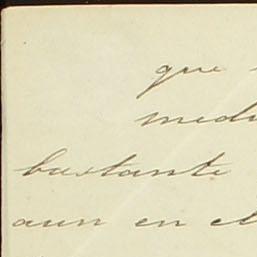 que
medi
bastante
aun en el